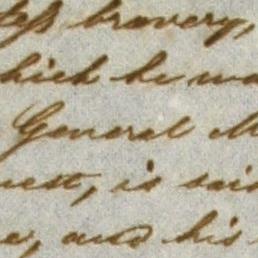 bravery,
which he wa
General M
uest, is said
and his